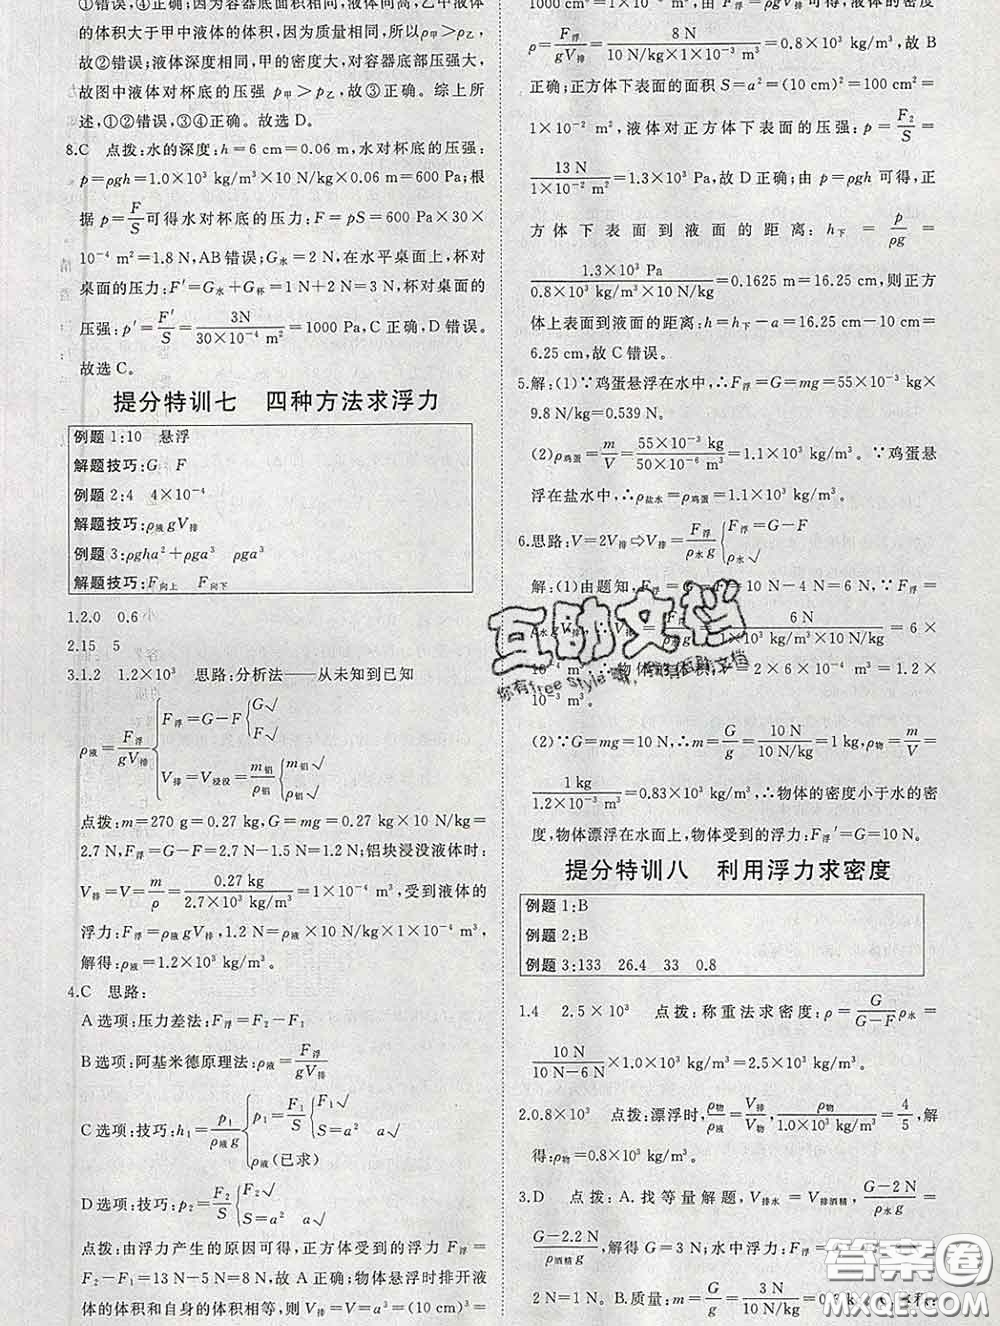 ①错误,④正确;因为容器底面积相同,液体高相同,乙中液体
的体积大于甲中液体的体积,因为质量相同,所以ρ甲>ρ乙,
故②错误;液体深度相同,甲的密度大,对容器底部压强大,
故图中液体对杯底的压强 p甲>p乙,故③正确。综上所
述,①②错误,③④正确。故选 D。
8.C 点拨:水的深度:h=6 cm=0.06 m,水对杯底的压强:
p=ρgh=1.0×10³ kg/m³×10 N/kg×0.06 m=600 Pa;根
据 p=F/S可得水对杯底的压力:F=pS=600 Pa×30×
10⁻⁴ m²=1.8 N,AB错误;G水=2 N,在水平桌面上,杯对
桌面的压力:F′=G水+G杯=1 N+2 N=3 N,杯对桌面的
压强:p′=F′/S=3N/(30×10⁻⁴ m²)=1000 Pa,C 正确,D 错误。
故选 C。
提分特训七 四种方法求浮力
例题 1:10 悬浮
解题技巧:G F
例题 2:4 4×10⁻⁴
解题技巧:ρ液gV排
例题 3:ρgha²+ρga³ ρga³
解题技巧:F向上 F向下
1.2.0 0.6
2.15 5
3.1.2 1.2×10³ 思路:分析法——从未知到已知
ρ液=F浮/gV排 { F浮=G-F { G√ F√
V排=V浸没=m铝/ρ铝 { m铝√ ρ铝√
点拨:m=270 g=0.27 kg,G=mg=0.27 kg×10 N/kg=
2.7 N,F浮=G-F=2.7 N-1.5 N=1.2 N;铝块浸没液体时:
V排=V=m/ρ=0.27 kg/(2.7×10³ kg/m³)=1×10⁻⁴ m³,受到液体的
浮力:F浮=ρ液gV排,1.2 N=ρ液×10 N/kg×1×10⁻⁴ m³,
解得:ρ液=1.2×10³ kg/m³。
4.C 思路:
A 选项:压力差法:F浮=F₂-F₁
B 选项:阿基米德原理法:ρ液=F浮/gV排
C 选项:技巧:h₁=p₁/ρ液g { p₁=F₁/S { F₁√ S=a² a√
ρ液(已求)
D 选项:技巧:p₂=F₂/S { F₂√ S=a² a√
点拨:由浮力产生的原因可得,正方体受到的浮力 F浮=
F₂-F₁=13 N-5 N=8 N,故 A 正确;物体悬浮时排开液
体的体积和自身的体积相等,则 V排=V=a³=(10 cm)³=
1000 cm³=1×10⁻³ m³,由 F浮=ρgV排可得,液体的密度
ρ=F浮/gV排=8 N/(10 N/kg×1×10⁻³ m³)=0.8×10³ kg/m³,故 B
正确;正方体下表面的面积 S=a²=(10 cm)²=100 cm²=
1×10⁻² m²,液体对正方体下表面的压强:p₂=F₂/S=
13 N/(1×10⁻² m²)=1.3×10³ Pa,故 D 正确;由 p=ρgh 可得,正
方体下表面到液面的距离:h下=p/ρg=
1.3×10³ Pa/(0.8×10³ kg/m³×10 N/kg)=0.1625 m=16.25 cm,则正方
体上表面到液面的距离:h=h下-a=16.25 cm-10 cm=
6.25 cm,故 C 错误。
5.解:(1)∵鸡蛋悬浮在水中,∴F浮=G=mg=55×10⁻³ kg×
9.8 N/kg=0.539 N。
(2)ρ鸡蛋=m/V=55×10⁻³ kg/(50×10⁻⁶ m³)=1.1×10³ kg/m³。∵鸡蛋悬
浮在盐水中,∴ρ盐水=ρ鸡蛋=1.1×10³ kg/m³。
6.思路:V=2V排⇨V排=F浮/ρ水g { F浮=G-F ρ水√
解:(1)由题知,F浮=G-F=10 N-4 N=6 N,
6 N
=6×
10⁻⁴ m³,∴物体的体积
=1.2×
10⁻³ m³。
(2)∵G=mg=10 N,∴m=G/g=10 N/(10 N/kg)=1 kg,ρ物=m/V=
1 kg/(1.2×10⁻³ m³)=0.83×10³ kg/m³,∴物体的密度小于水的密
度,物体漂浮在水面上,物体受到的浮力:F浮′=G=10 N。
提分特训八 利用浮力求密度
例题 1:B
例题 2:B
例题 3:133 26.4 33 0.8
1.4 2.5×10³ 点拨:称重法求密度:ρ=G/(G-F)ρ水=
10 N/(10 N-6 N)×1.0×10³ kg/m³=2.5×10³ kg/m³。
2.0.8×10³ 点拨:漂浮时,ρ物/ρ液=V排/V物,ρ物/(1.0×10³ kg/m³)=4/5,解
得:ρ物=0.8×10³ kg/m³。
3.D 点拨:A.找等量解题,V排水=V排酒精,(G-2 N)/ρ水g=
(G-2.2 N)/ρ酒精g,解得 G=3 N;水中浮力:
2 N=1 N。B.质量:m=G/g=3 N/(10 N/kg)=0.3 kg,体积:
互助文档
答案圈
MXQE.COM